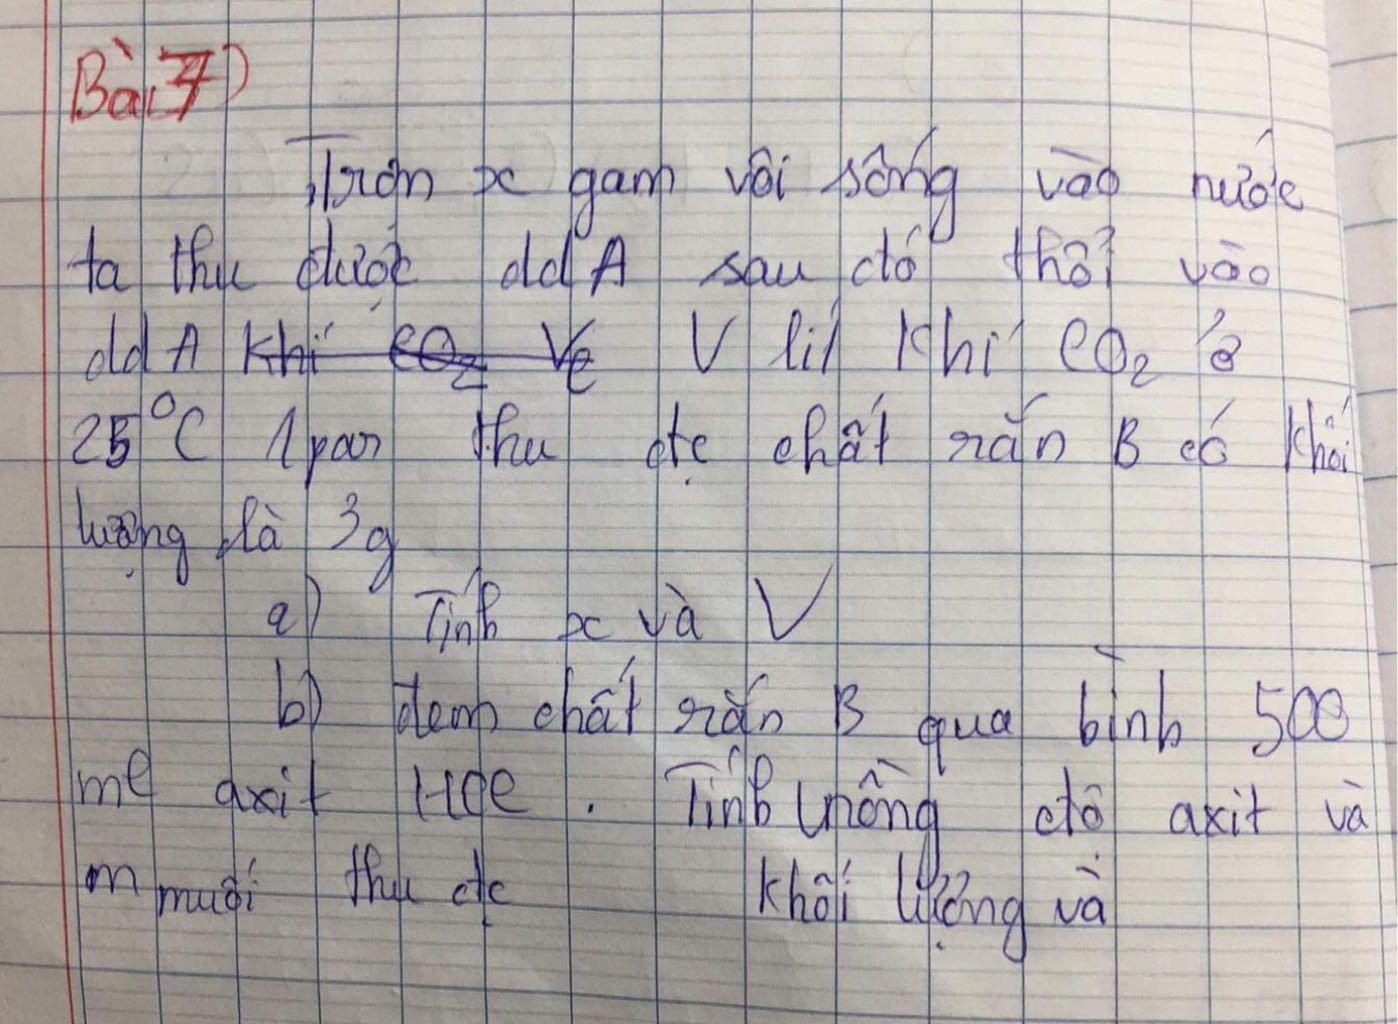 Bài 7)
Trộn x gam vôi sống vào nước
ta thu được dd A sau đó thổi vào
dd A khí CO2 V V lit khí CO2 ở
25°C 1par thu đc chất rắn B có khối
lượng là 3g
a) Tính x và V
b) đem chất rắn B qua bình 500
ml axit HCl . Tính nồng độ axit và
m muối thu đc khối lượng và